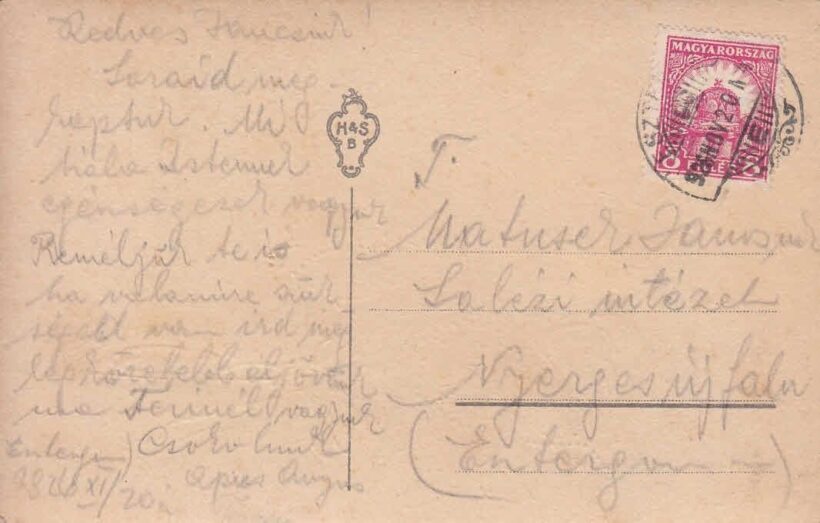 Kedves Jancsink!
Soraid meg-
kaptuk. Mi
hála Istennek
egénségesek vagyunk
Reméljük te is
ha valamire szük
séged van ird meg
legközelebb eljövünk
ma Ferinél vagyunk
Csókolunk
Apus Anyus
Esztergom
1926 XI/20.
H&S
B
MAGYARORSZÁG
926 NOV 20
T.
Matuser Jánosnak
Salézi intézet
Nyergesújfalu
(Esztergom m)